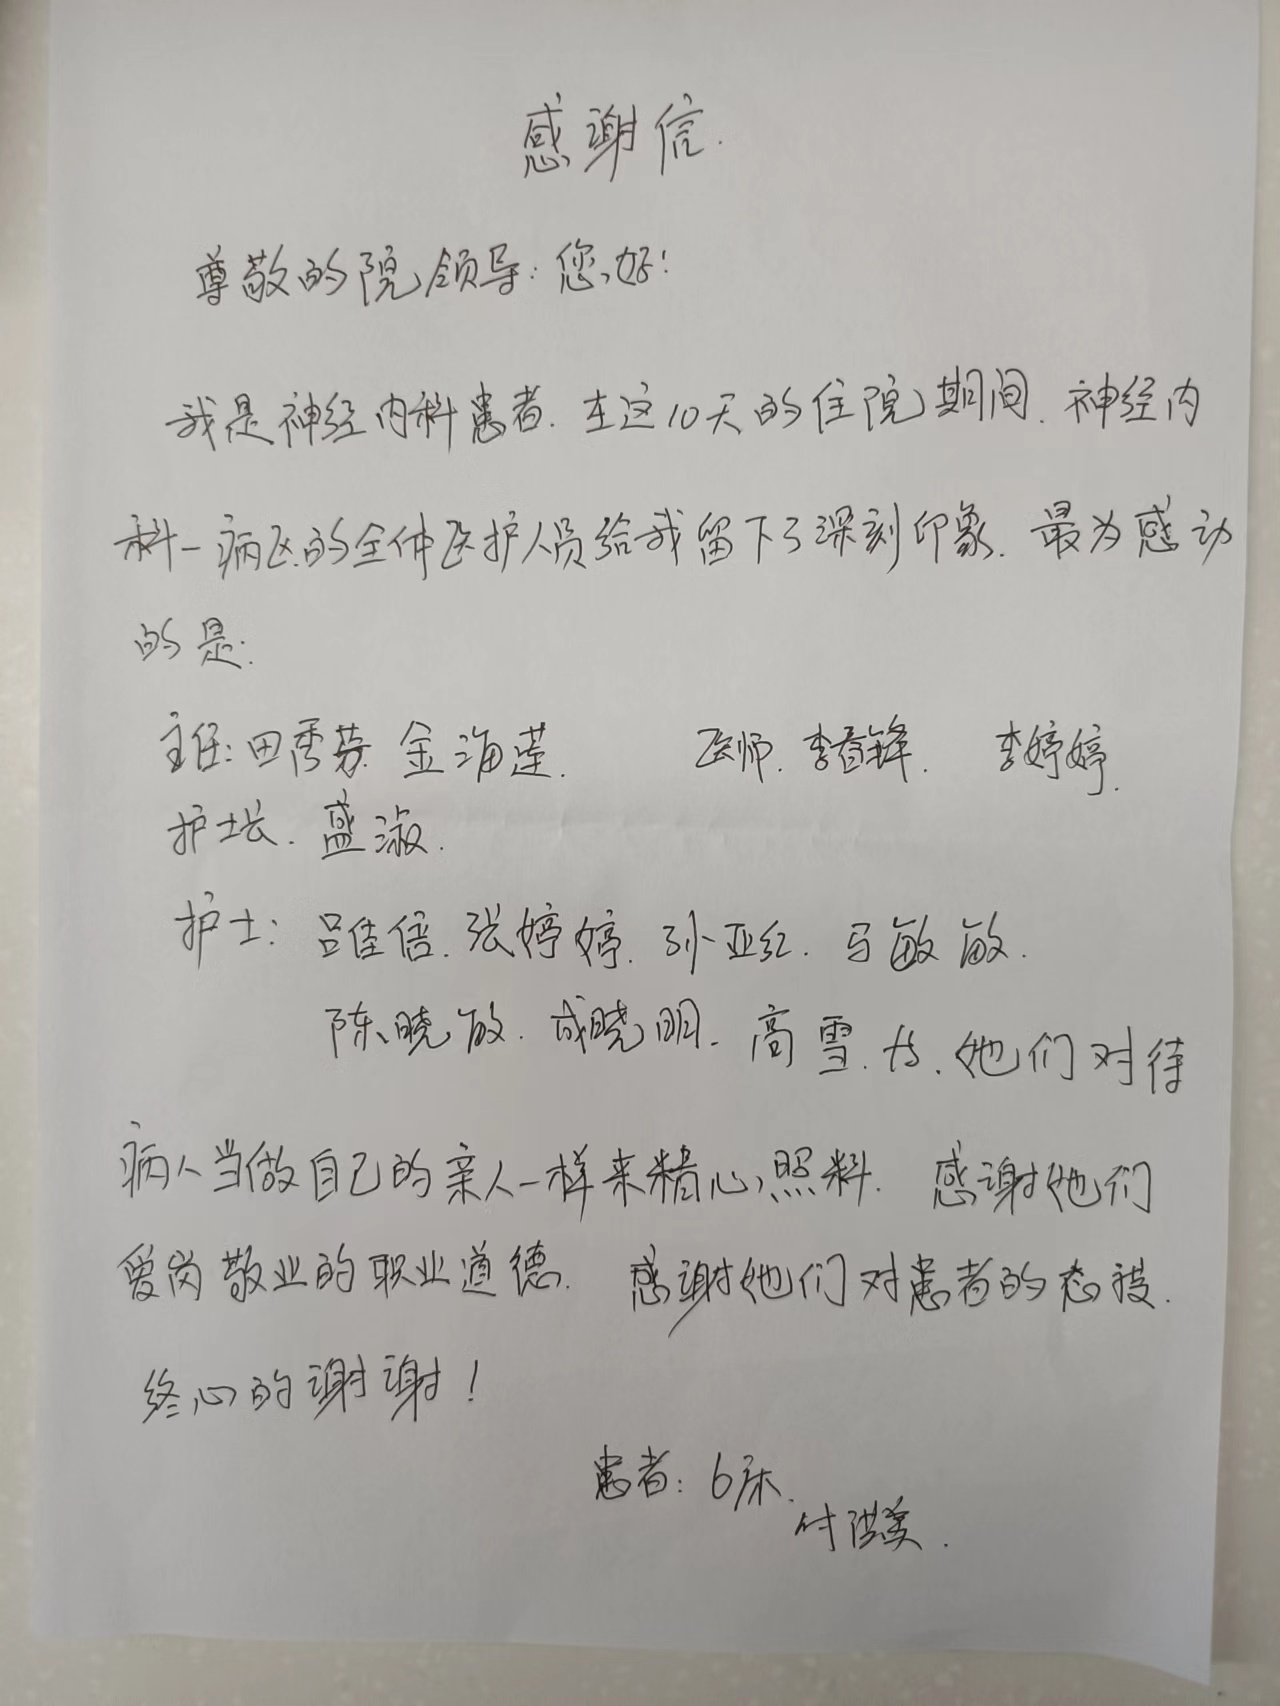 感谢信.
尊敬的院领导:您好!
我是神经内科患者.在这10天的住院期间.神经内
科一病区的全体医护人员给我留下了深刻印象.最为感动
的是:
主任:田秀芬 金海莲. 医师.李春锋. 李婷婷.
护士长.盛淑.
护士: 吕佳倍.张婷婷.孙亚红.马敏敏.
陈晓敏.成晓明.高雪..她们对待
病人当做自己的亲人一样来精心照料. 感谢她们
爱岗敬业的职业道德. 感谢她们对患者的态度.
终心的谢谢!
患者:6床.
付洪美.